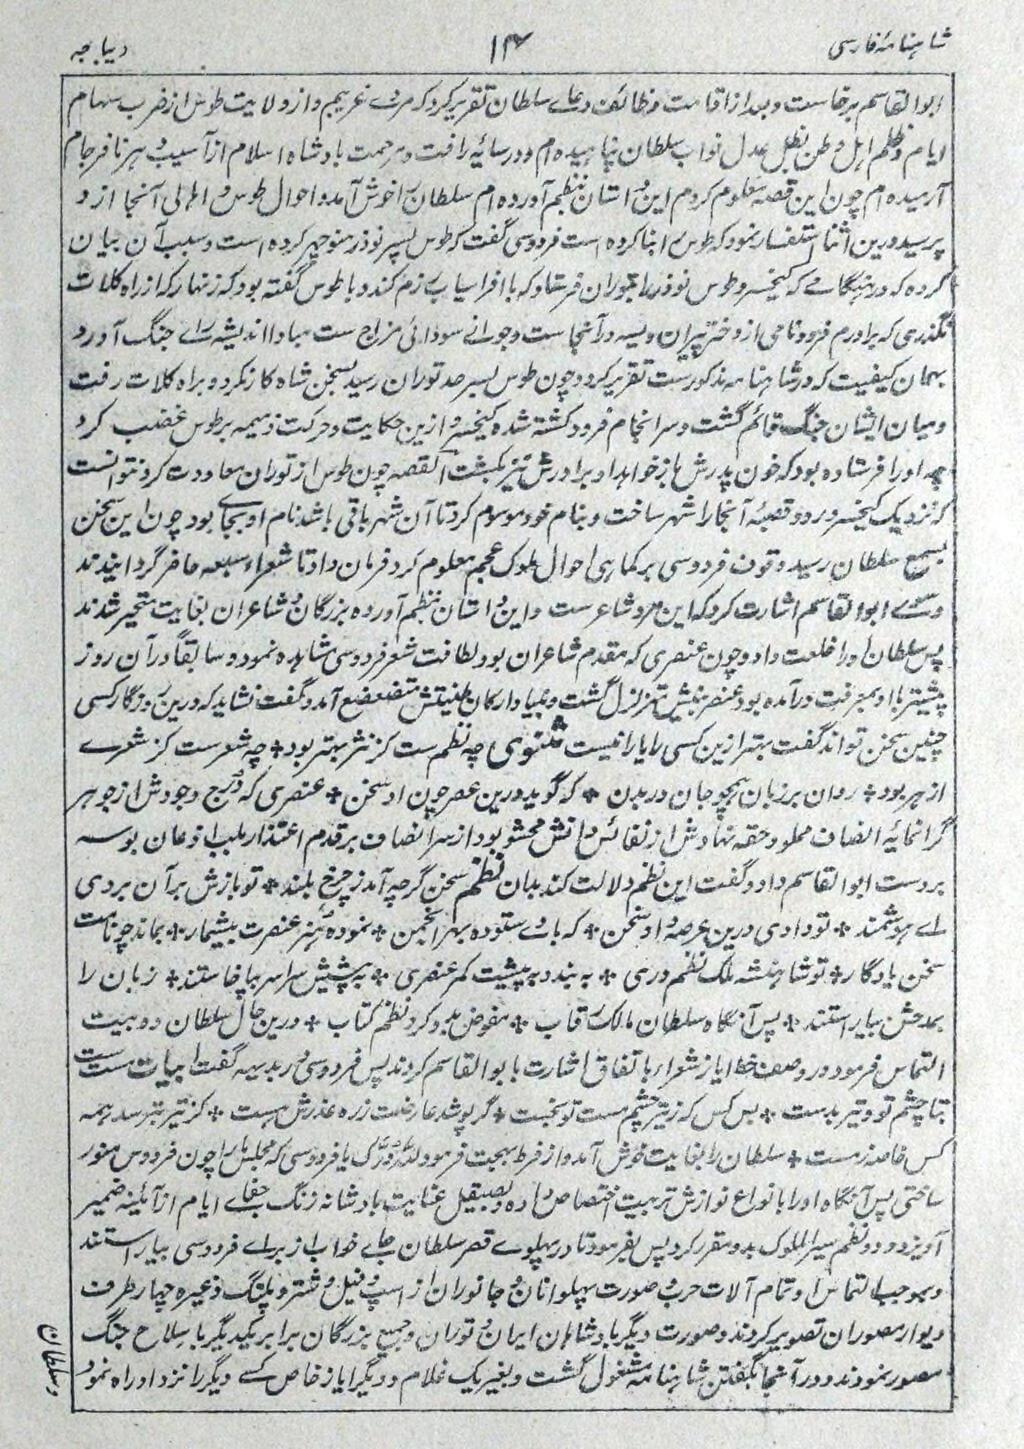 شاہنامۂ فارسی
۱۴
دیباچہ
ابوالقاسم برخاست و بعد از اقامت وظائف دعاے سلطان تقریر کرد کہ مردے غریبم و از ولایت طوس از ضرب سہام
ایام و ظلم اہل وطن بظل عدل نواب سلطان پناہیدہ ام و در سائیہ رافت و مرحمت بادشاہ اسلام از آسیب دہر نافرجام
آرمیدہ ام چون این قصہ معلوم کردم این داستان بنظم آوردہ ام سلطان را خوش آمد و احوال طوس و اہالی آنجا ازو
پرسید درین اثنا استفسار نمود کہ طوس را بنا کردہ است فردوسی گفت کہ طوس پسر نوذر منوچہر کردہ است و سبب آن بیان
کردہ کہ در ہنگامے کہ کیخسرو طوس نوذر را بتوران فرستاد کہ با افراسیاب رزم کند و با طوس گفتہ بود کہ زنہار کہ از راہ کلات
نگذری کہ برادرم فرود نامی از دختر پیران ویسہ در آنجاست و جوانے سودائی مزاج ست مبادا اندیشہ راے جنگ آورد
بہمان کیفیت کہ در شاہنامہ مذکورست تقریر کرد و چون طوس بسرحد توران رسید بسخن شاہ کار نکرد و براہ کلات رفت
و میان ایشان جنگ قائم گشت و سرانجام فرود کشتہ شد کیخسرو ازین حکایت و حرکت ذمیمہ بر طوس غضب کرد
چہ او را فرستادہ بود کہ خون پدرش باز خواہد او برادرش نیز بکشت القصہ چون طوس از توران معاودت کرد نتوانست
کہ نزدیک کیخسرو رود قصبۂ آنجا را شہر ساخت و بنام خود موسوم کرد تا آن شہر باقی باشد نام او بجاے بود چون این سخن
بسمع سلطان رسید و وقوف فردوسی بر کماہی احوال ملوک عجم معلوم کرد فرمان داد تا شعراء سبعہ حاضر گردانیدند
وسے ابوالقاسم اشارت کرد کہ این مرد شاعرست و این داستان بنظم آوردہ بزرگان و شاعران بغایت متحیر شدند
پس سلطان او را خلعت داد و چون عنصری کہ مقدم شاعران بود لطافت شعر فردوسی مشاہدہ نمود و سابقاً در آن روز
پیشتر با او بمعرفت درآمدہ بود عنصر تنش متزلزل گشت و بنیاد ارکان طنیتش متضعضع آمد و گفت نشاید کہ درین روزگار کسی
چنین سخن تواند گفت بہتر ازین کسی را یارا نیست مثنوی چہ نظم ست کز نثر بہتر بود * چہ شعرست کز شعرے
از ہر بود * روان بر زبان ہمچو جان در بدن * کہ گوید درین عصر چون او سخن * عنصری کہ درج وجودش از جوہر
گرانمایہ انصاف مملو و حقہ نہادش از نفائس دانش محشو بود از سر انصاف بر قدم اعتذار بلب اذعان بوسہ
بر دست ابوالقاسم داد و گفت این نظم دلالت کند بدان نظم سخن گرچہ آمد ز چرخ بلند * تو بازش بر آن بردی
اے ہوشمند * تو دادی درین عرصہ داد سخن * کہ باے ستودہ بہر انجمن * نمودہ ہنر عنصرت بیشمار * بماند چو نامت
سخن یادگار * تو شاہنشہ ملک نظم دری * بہ بندد بہ پیشت کمر عنصری * بہ پیشش سراسر بپا خاستند * زبان را
بمدحش بیاراستند * پس آنگاہ سلطان مالک رقاب * مفوض بدو کرد نظم کتاب * درین حال سلطان دہ بیت
التماس فرمود در وصف خط ایاز شعراء باتفاق اشارت بابوالقاسم کردند پس فردوسی در بدیہہ گفت ابیات مست ست
بتا چشم تو و تیر بدست * بس کس کہ ز تیر چشم مست تو بخست * گر پوشد عارضت زرہ عذرش ہست * کز تیر بترسد ہمہ
کس خاصہ ز مست * سلطان را بغایت خوش آمد و از فرط بہجت فرمود للہ درک یا فردوسی کہ مجلس ما را چون فردوس منور
ساختی پس آنگاہ او را بانواع نوازش تربیت اختصاص دادہ و بصیقل عنایت بادشانہ زنگ جفاے ایام از آئینہ ضمیر
او بزدود و نظم سیر الملوک بدو مقرر کرد پس بفرمود تا در پہلوے قصر سلطان جاے خواب از براے فردوسی بیاراستند
و بموجب التماس او تمام آلات حرب و صورت پہلوانان و جانوران از اسپ و فیل و شتر و پلنگ وغیرہ چہار طرف
دیوار مصوران تصویر کردند و صورت دیگر بادشاہان ایران و توران و جمیع بزرگان برابر یکدیگر با سلاح جنگ
مصور نمودند و در آنجا بگفتن شاہنامہ مشغول گشت و بغیر یک غلام و دیگر ایاز خاص کسے دیگر را نزد او راہ نبود
و سلطان